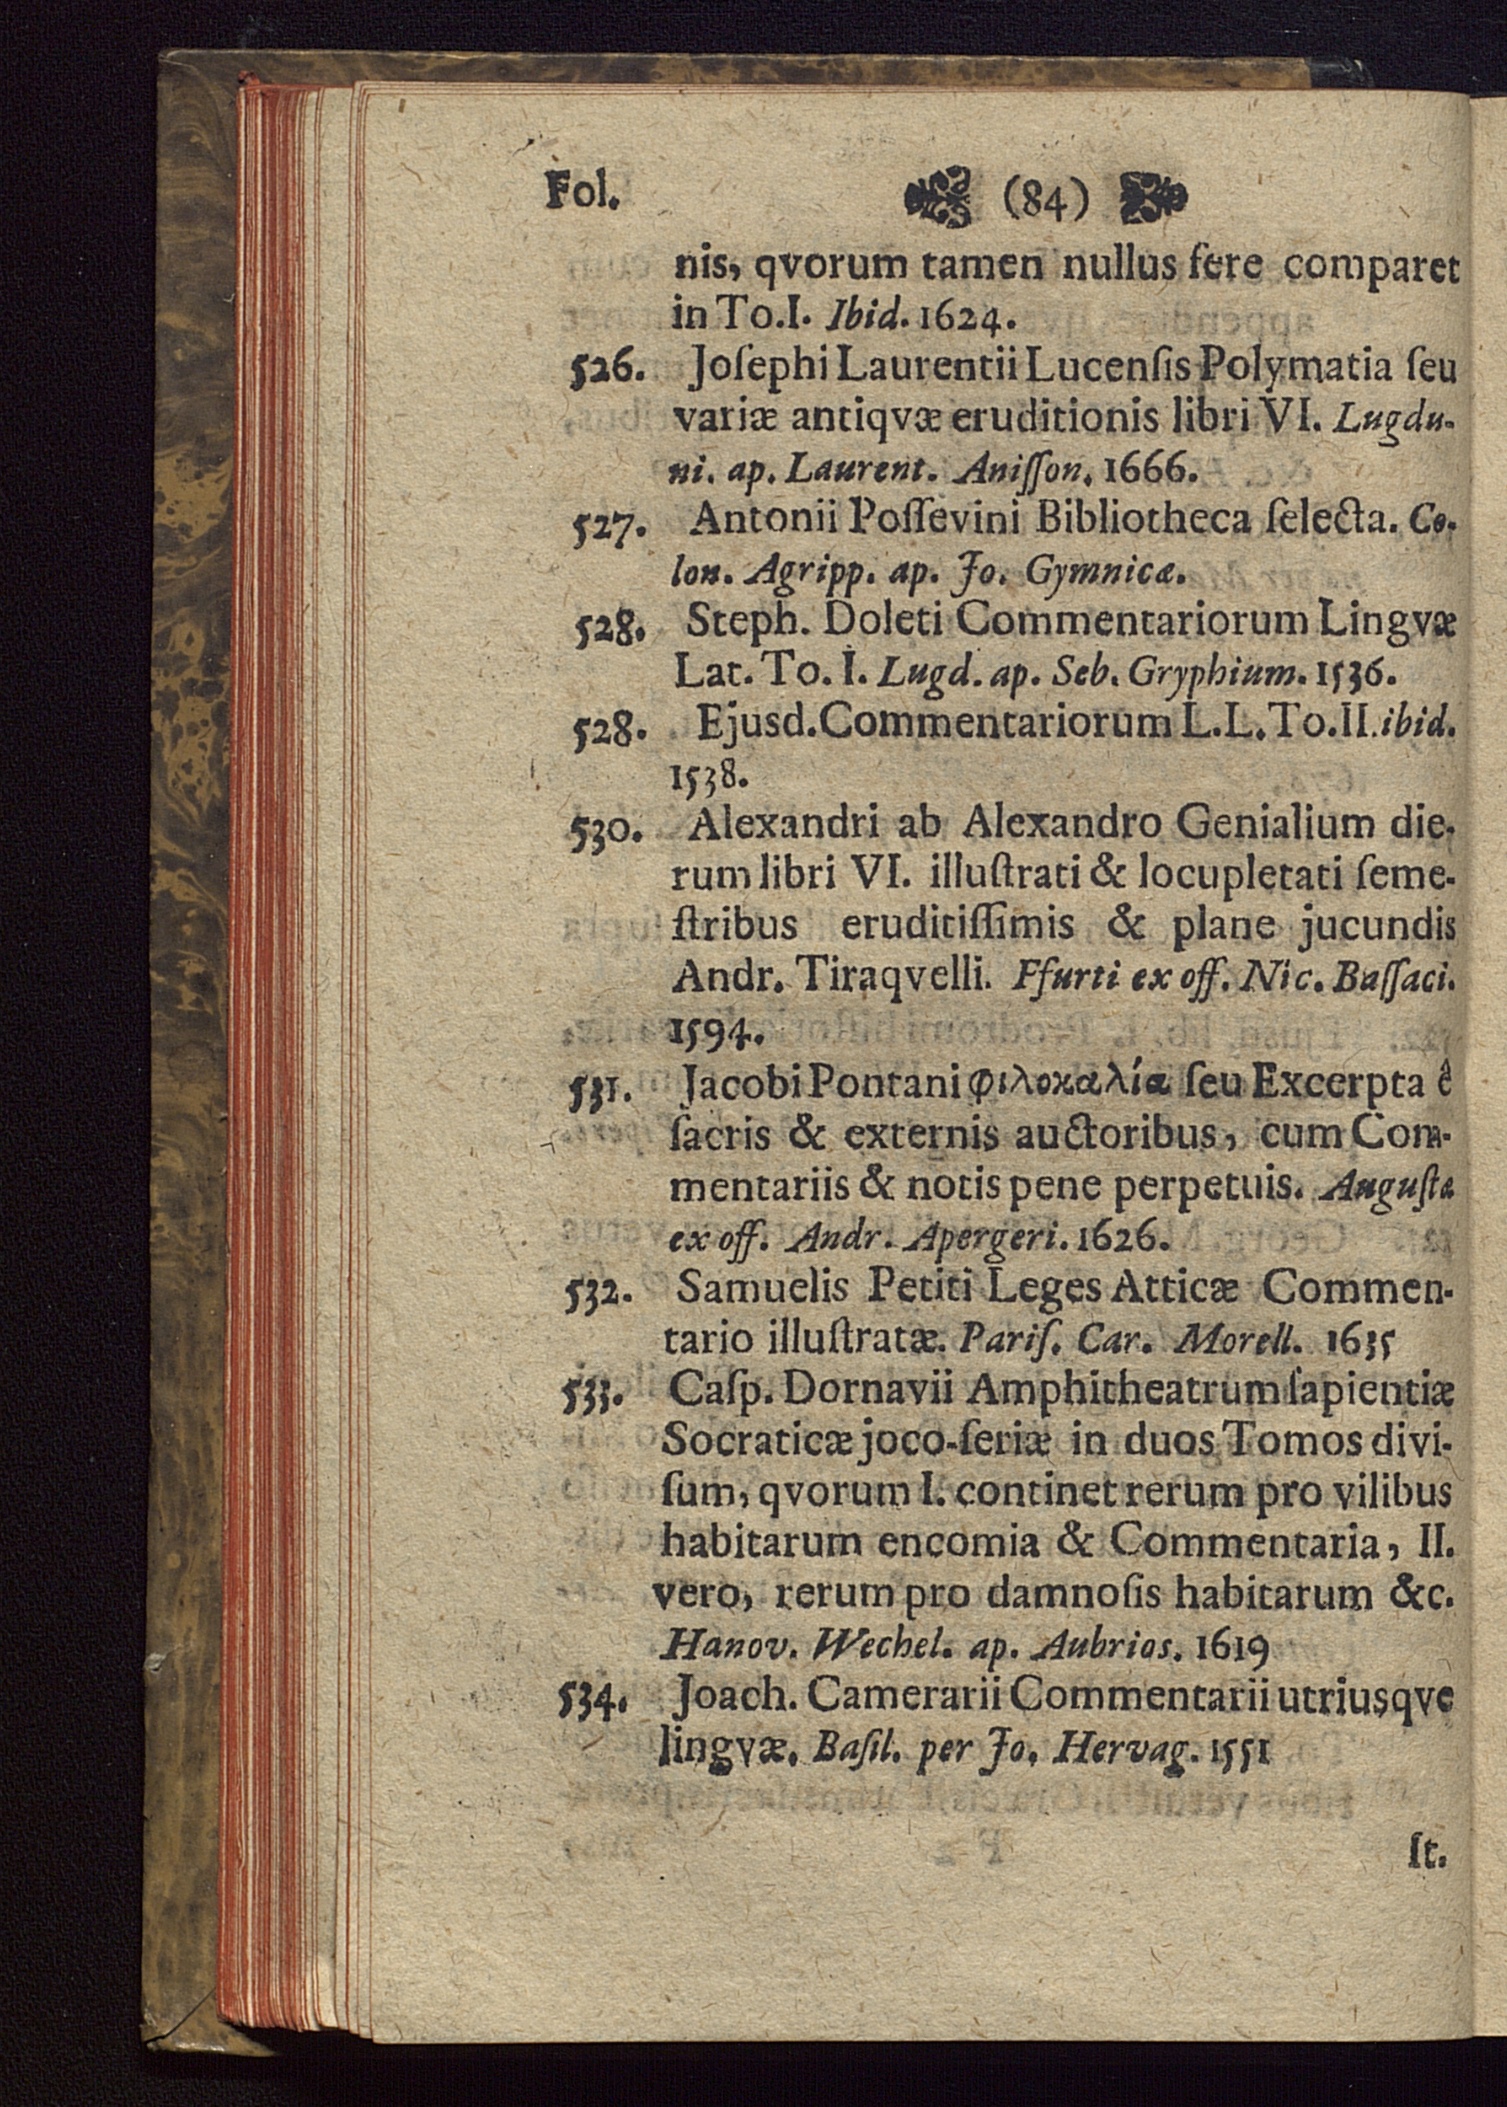 Fol. (84)
nis, qvorum tamen nullus fere comparet
in To.I. Ibid. 1624.
526. Joſephi Laurentii Lucenſis Polymatia ſeu
variæ antiqvæ eruditionis libri VI. Lugdu-
ni. ap. Laurent. Aniſſon. 1666.
527. Antonii Poſſevini Bibliotheca ſelecta. Co-
lon. Agripp. ap. Jo. Gymnicæ.
528. Steph. Doleti Commentariorum Lingvæ
Lat. To. I. Lugd. ap. Seb. Gryphium. 1536.
528. Ejusd. Commentariorum L.L. To.II. ibid.
1538.
530. Alexandri ab Alexandro Genialium die-
rum libri VI. illuſtrati & locupletati ſeme-
ſtribus eruditiſſimis & plane jucundis
Andr. Tiraqvelli. Ffurti ex off. Nic. Baſſaci.
1594.
531. Jacobi Pontani φιλοκαλία ſeu Excerpta ê
ſacris & externis auctoribus, cum Com-
mentariis & notis pene perpetuis. Auguſta
ex off. Andr. Apergeri. 1626.
532. Samuelis Petiti Leges Atticæ Commen-
tario illuſtratæ. Pariſ. Car. Morell. 1635
533. Caſp. Dornavii Amphitheatrum ſapientiæ
Socraticæ joco-ſeriæ in duos Tomos divi-
ſum, qvorum I. continet rerum pro vilibus
habitarum encomia & Commentaria, II.
vero, rerum pro damnoſis habitarum &c.
Hanov. Wechel. ap. Aubrios. 1619
534. Joach. Camerarii Commentarii utriusqve
lingvæ. Baſil. per Jo. Hervag. 1551
ſt.